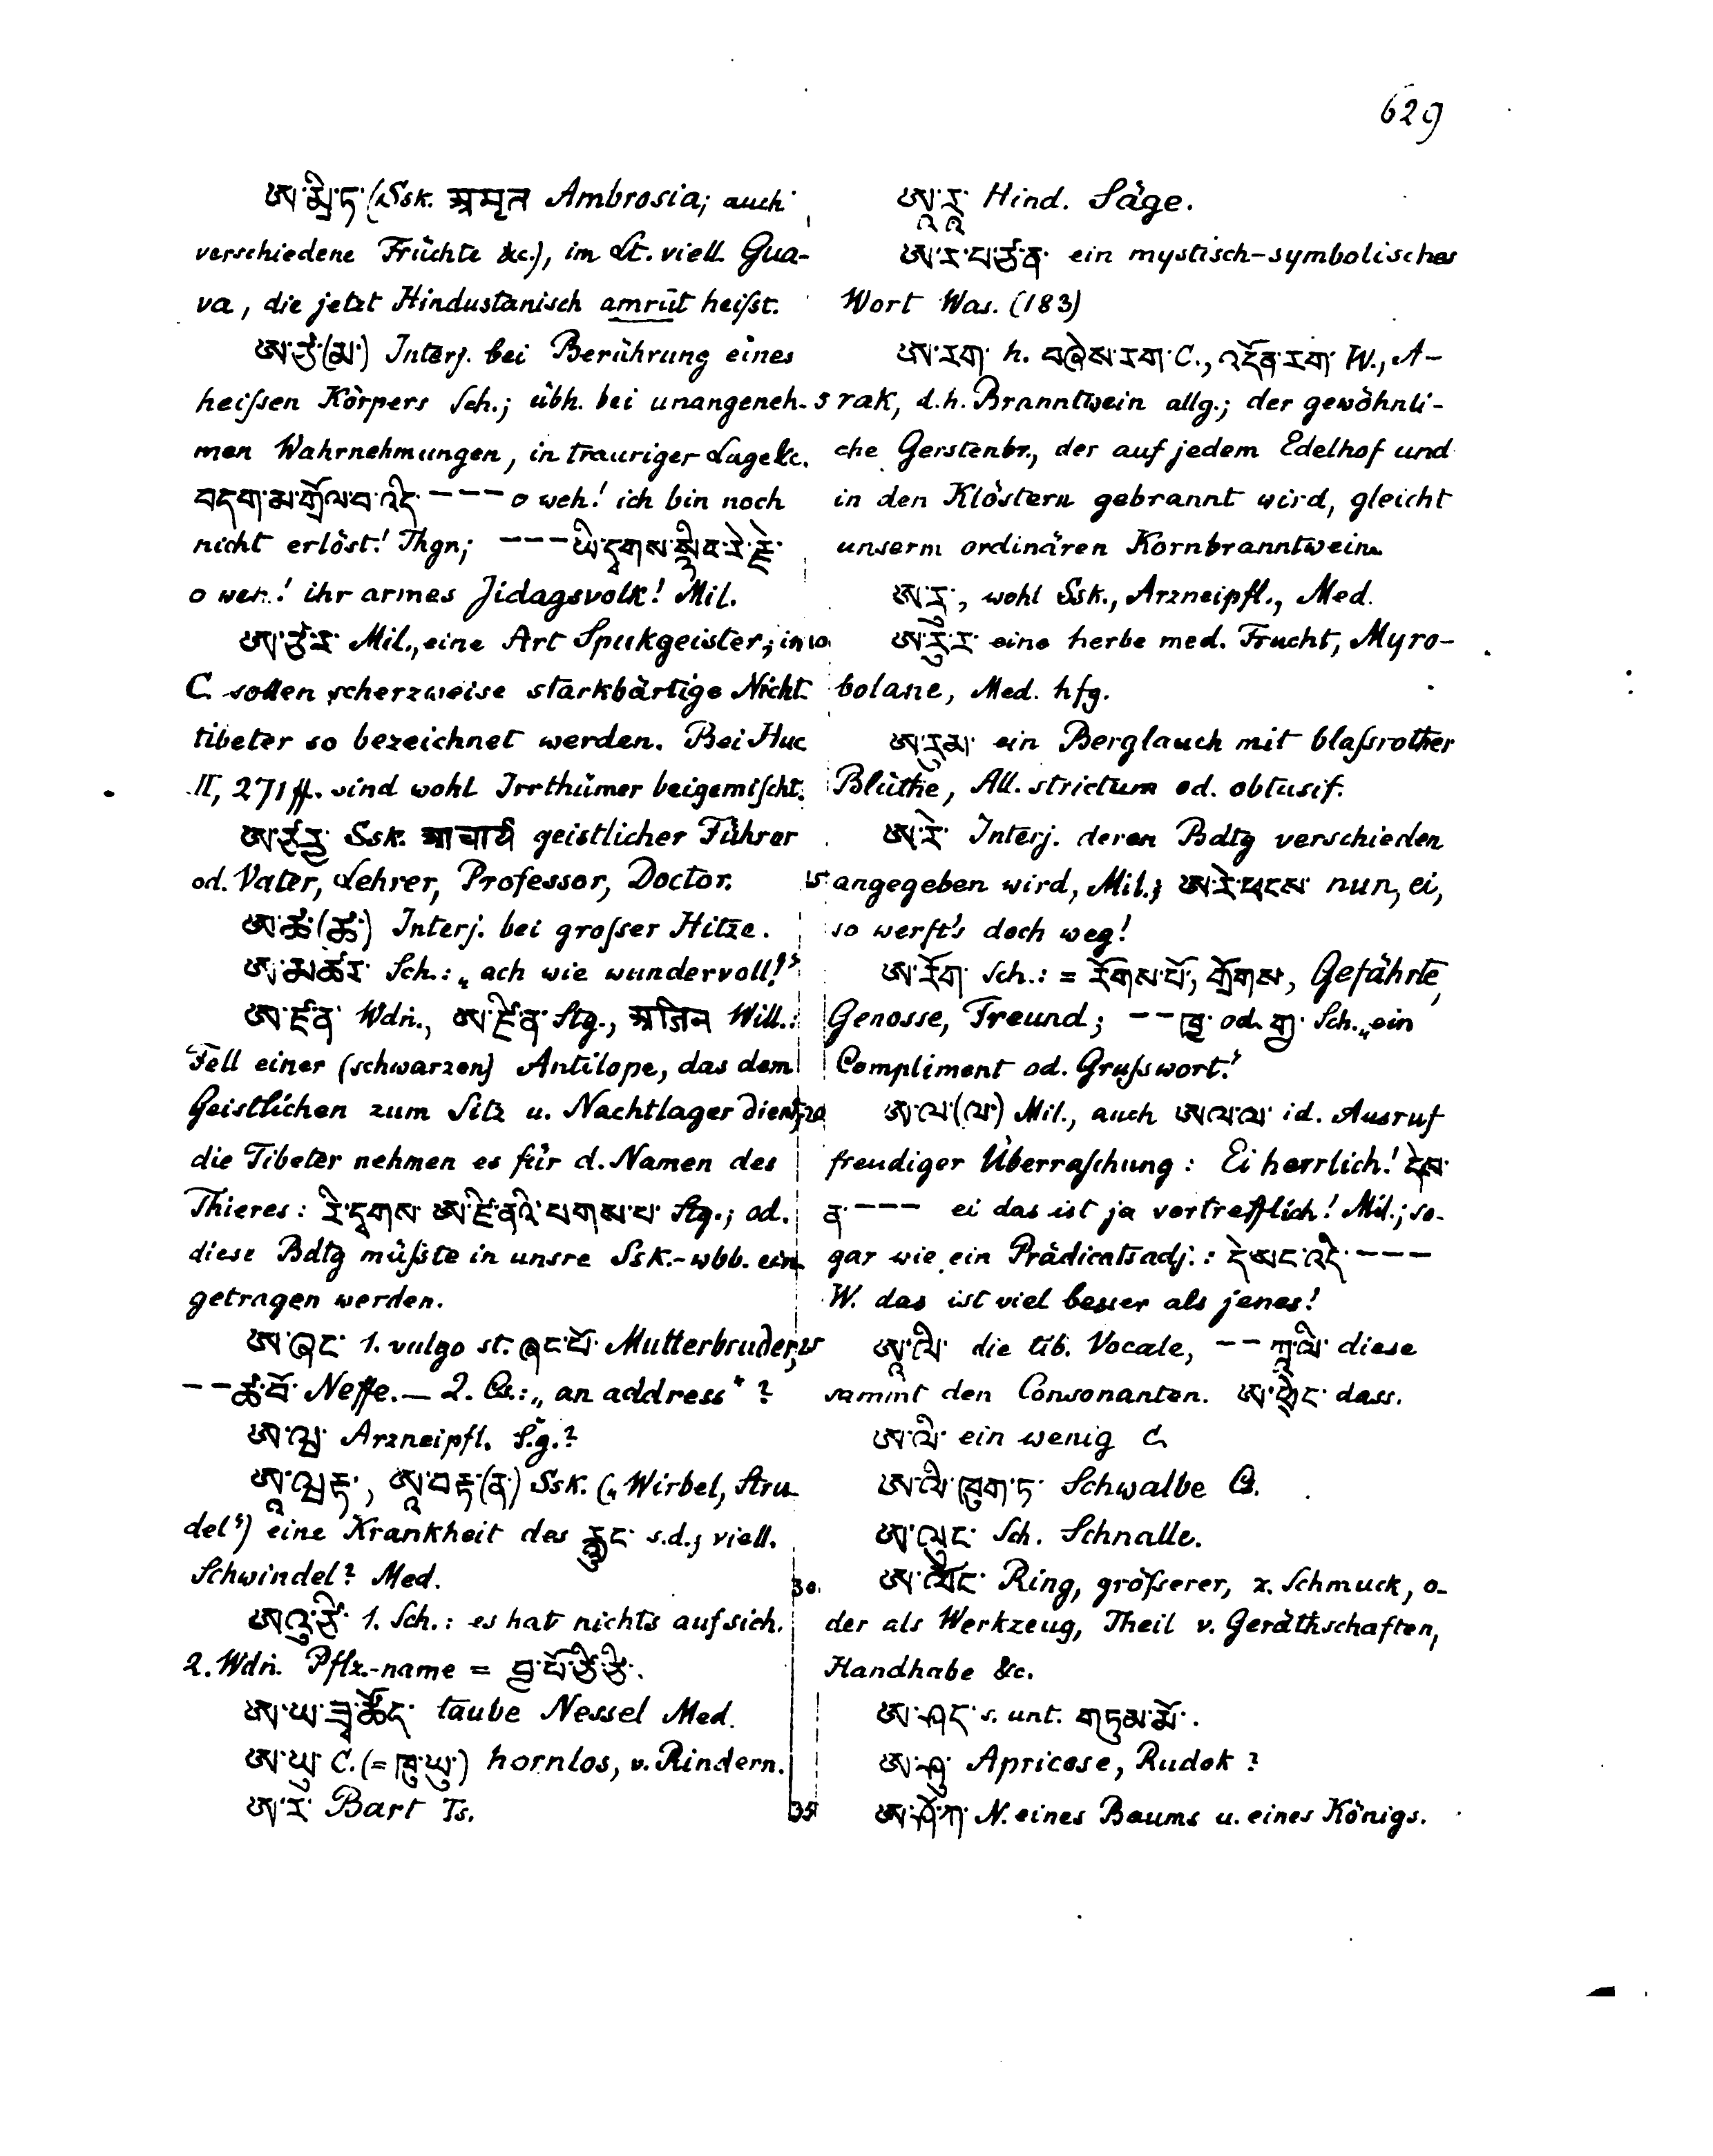 629
ཨ་མྲྀ་ཏ་ (Ssk. अमृत Ambrosia; auch
verschiedene Früchte &c.), im Lt. viell. Gua-
va, die jetzt Hindustanisch amrūt heißt.
ཨ་ཙྪེ་(མ་) Interj. bei Berührung eines
heißen Körpers Sch.; übh. bei unangeneh-
men Wahrnehmungen, in trauriger Lage &c.
བདག་མ་གྲོལ་བ་འདི་ --- o weh! ich bin noch
nicht erlöst! Thgn; --- ཡི་དྭགས་སྙིང་རེ་རྗེ་
o weh! ihr armes Jidagsvolk! Mil.
ཨ་ཙ་ར་ Mil., eine Art Spukgeister; in
C. sollen scherzweise starkbärtige Nicht-
tibeter so bezeichnet werden. Bei Huc
II, 271 ff. sind wohl Irrthümer beigemischt.
ཨ་ཙཱརྱ་ Ssk. आचार्य geistlicher Führer
od. Vater, Lehrer, Professor, Doctor.
ཨ་ཚ་(ཚ་) Interj. bei großer Hitze.
ཨ་མཚར་ Sch.: „ach wie wundervoll!“
ཨ་ཛི་ན་ Wdn., ཨ་ཛི་ན་ Stg., अजिन Will.:
Fell einer (schwarzen) Antilope, das dem
Geistlichen zum Sitz u. Nachtlager dient;
die Tibeter nehmen es für d. Namen des
Thieres: རི་དྭགས་ ཨ་ཛི་ནའི་ པགས་པ་ Stg.; od.
diese Bdtg müßte in unsre Ssk.-wbb. ein-
getragen werden.
ཨ་ཞང་ 1. vulgo st. ཞང་པོ་ Mutterbruder,
-- ཚ་བོ་ Neffe. — 2. Cs.: „an address“?
ཨ་ Arzneipfl. S.g.?
ཨཱ་, ཨཱ་བརྟ་(ན་) Ssk. („Wirbel, Stru-
del“) eine Krankheit des རླུང་ s.d.; viell.
Schwindel? Med.
ཨ་འུ་ཙི་ 1. Sch.: es hat nichts auf sich.
2. Wdn. Pflz.-name = བྱ་པོ་ཙི་ཙི་.
ཨ་ཡ་ཟྭ་ཚོད་ taube Nessel Med.
ཨ་ཡུ་ C. (= ཁུ་ཡུ་) hornlos, v. Rindern.
ཨ་ར་ Bart Ts.
ཨཱ་རཱ་ Hind. Säge.
ཨ་ར་པ་ཙ་ན་ ein mystisch-symbolisches
Wort Was. (183)
ཨ་རག་ h. བཞེས་རག་ C., འདོན་རག་ W., A-
5 rak, d.h. Branntwein allg.; der gewöhnli-
che Gerstenbr., der auf jedem Edelhof und
in den Klöstern gebrannt wird, gleicht
unserm ordinären Kornbranntwein.
ཨ་རུ་, wohl Ssk., Arzneipfl., Med.
10 ཨ་རུ་ར་ eine herbe med. Frucht, Myro-
bolane, Med. hfg.
ཨ་རུམ་ ein Berglauch mit blaßrother
Blüthe, All. strictum od. obtusif.
ཨ་རེ་ Interj. deren Bdtg verschieden
15 angegeben wird, Mil.; ཨ་རེ་ཕངས་ nun, ei,
so werft's doch weg!
ཨ་རོག་ Sch.: = རོགས་པོ་, གྲོགས་, Gefährte,
Genosse, Freund; -- ཁྱ་ od. གྱ་ Sch. „ein
Compliment od. Grußwort.“
20 ཨ་ལ་(ལ་) Mil., auch ཨལ་ལ་ id. Ausruf
freudiger Überraschung: Ei herrlich! དེས་
ན་ --- ei das ist ja vortrefflich! Mil.; so-
gar wie ein Prädicatsadj.: དེ་སང་འདི་ ---
W. das ist viel besser als jenes!
25 ཨཱ་ལི་ die tib. Vocale, -- ཀཱ་ལི་ diese
sammt den Consonanten. ཨ་ཕྲེང་ dass.
ཨ་ལི་ ein wenig C.
ཨ་ལི་ཁུག་ཏ་ Schwalbe Cs.
ཨ་ལུང་ Sch. Schnalle.
30 ཨ་ལོང་ Ring, größerer, z. Schmuck, o-
der als Werkzeug, Theil v. Geräthschaften,
Handhabe &c.
ཨ་ཤང་ s. unt. གཏུམ་མོ་.
ཨ་ཤུ་ Apricose, Rudok?
35 ཨ་ཤོ་ཀ་ N. eines Baums u. eines Königs.